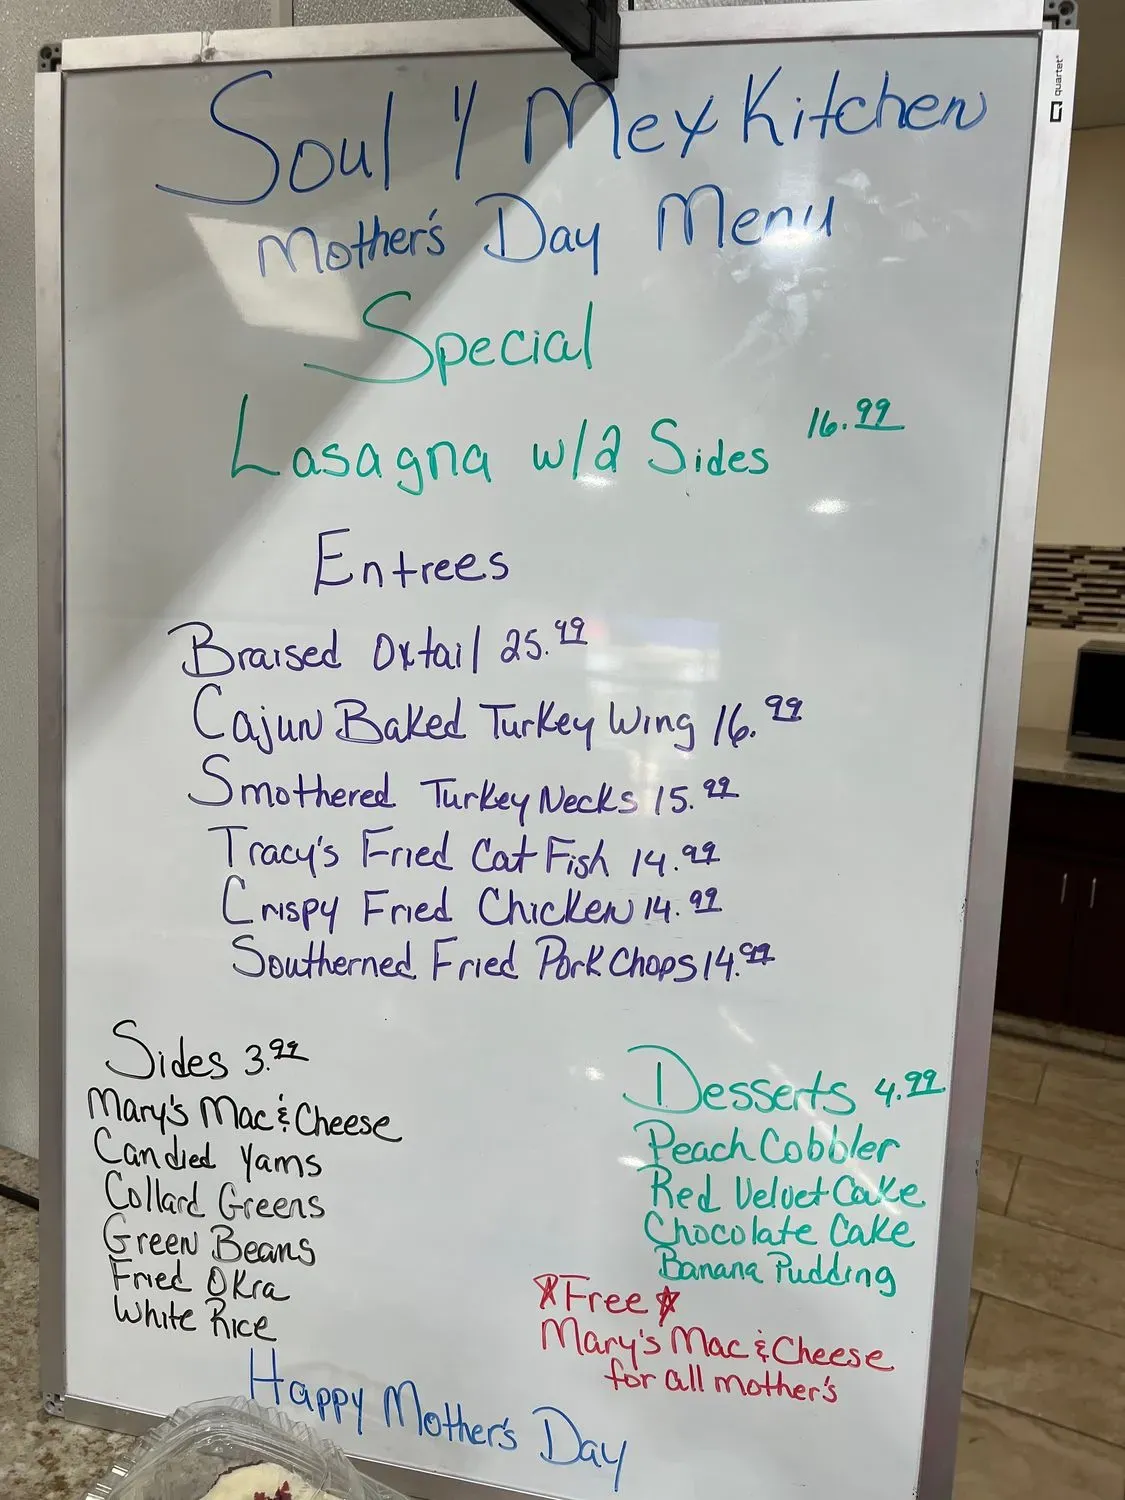 Soul y Mex Kitchen
Mother's Day Menu
Special
Lasagna w/2 Sides 16.99
Entrees
Braised Oxtail 25.99
Cajun Baked Turkey Wing 16.99
Smothered Turkey Necks 15.99
Tracy's Fried Cat Fish 14.99
Crispy Fried Chicken 14.99
Southerned Fried Pork Chops 14.99
Sides 3.99
Mary's Mac & Cheese
Candied Yams
Collard Greens
Green Beans
Fried Okra
White Rice
Desserts 4.99
Peach Cobbler
Red Velvet Cake
Chocolate Cake
Banana Pudding
*Free*
Mary's Mac & Cheese
for all mother's
Happy Mother's Day
quartet